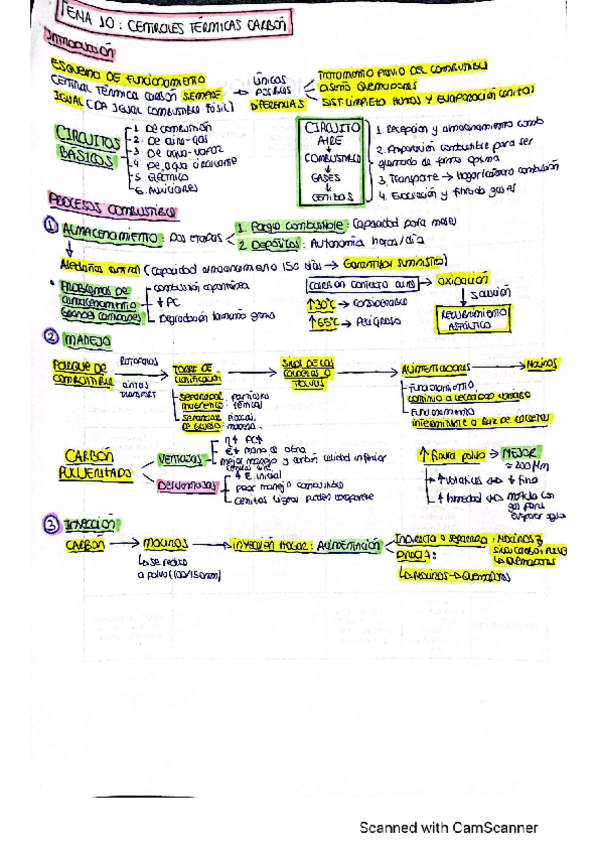 TEMA 10: CENTRALES TÉRMICAS CARBÓN
Introducción
ESQUEMA DE FUNCIONAMIENTO
CENTRAL TÉRMICA CARBÓN SIEMPRE
IGUAL (DA IGUAL COMBUSTIBLE FÓSIL)
ÚNICAS
POSIBLES
DIFERENCIAS
TRATAMIENTO PREVIO DEL COMBUSTIBLE
DISEÑO QUEMADORES
SIST. LIMPIEZA HUMOS Y EVACUACIÓN CENIZAS
CIRCUITOS
BÁSICOS
1. De combustión
2. De aire-gas
3. De agua-vapor
4. De agua circulante
5. Eléctrico
6. Auxiliares
CIRCUITO
AIRE
COMBUSTIBLE
GASES
CENIZAS
1. Recepción y almacenamiento comb
2. Preparación combustible para ser
quemado de forma óptima
3. Transporte → Hogar/cámara combustión
4. Evacuación y filtrado gases
PROCESOS COMBUSTIBLE
1 ALMACENAMIENTO: Dos etapas
1. Parque combustible: Capacidad para meses
2. Depósitos: Autonomía horas/día
Aledaños central (capacidad almacenamiento 150 días → Garantizar suministro)
Problemas de
almacenamiento
grandes cantidades
combustión espontánea
↓ PC
Degradación tamaño grano
CARBÓN CONTACTO AIRE → OXIDACIÓN
↑30ºC → Considerable
↑65ºC → PELIGROSO
SOLUCIÓN
RECUBRIMIENTO
ASFÁLTICO
2 MANEJO
PARQUE DE
COMBUSTIBLE
Rotopalas
cintas
transport
TORRE DE
separador
magnético
partículas
SILOS DE
TOLVAS
ALIMENTADORES
Molinos
Funcionamiento
continuo a
Funcionamiento
intermitente a base de
CARBÓN
PULVERIZADO
VENTAJAS
mano de obra
mejor manejo y carbón calidad inferior
DESVENTAJAS
↑ € inicial
peor manejo combustible
cenizas
↑ finura polvo → MEJOR
≈ 200 µm
↑ Volátiles ↔ ↓ fino
↑ humedad ↔ molido con
gas para
evaporar agua
3 INYECCIÓN
CARBÓN → MOLINOS → INYECCIÓN HOGAR: ALIMENTACIÓN
se reduce
a polvo
Indirecta o separada: Molinos
Quemadores
Directa:
Molinos → Quemadores
Scanned with CamScanner